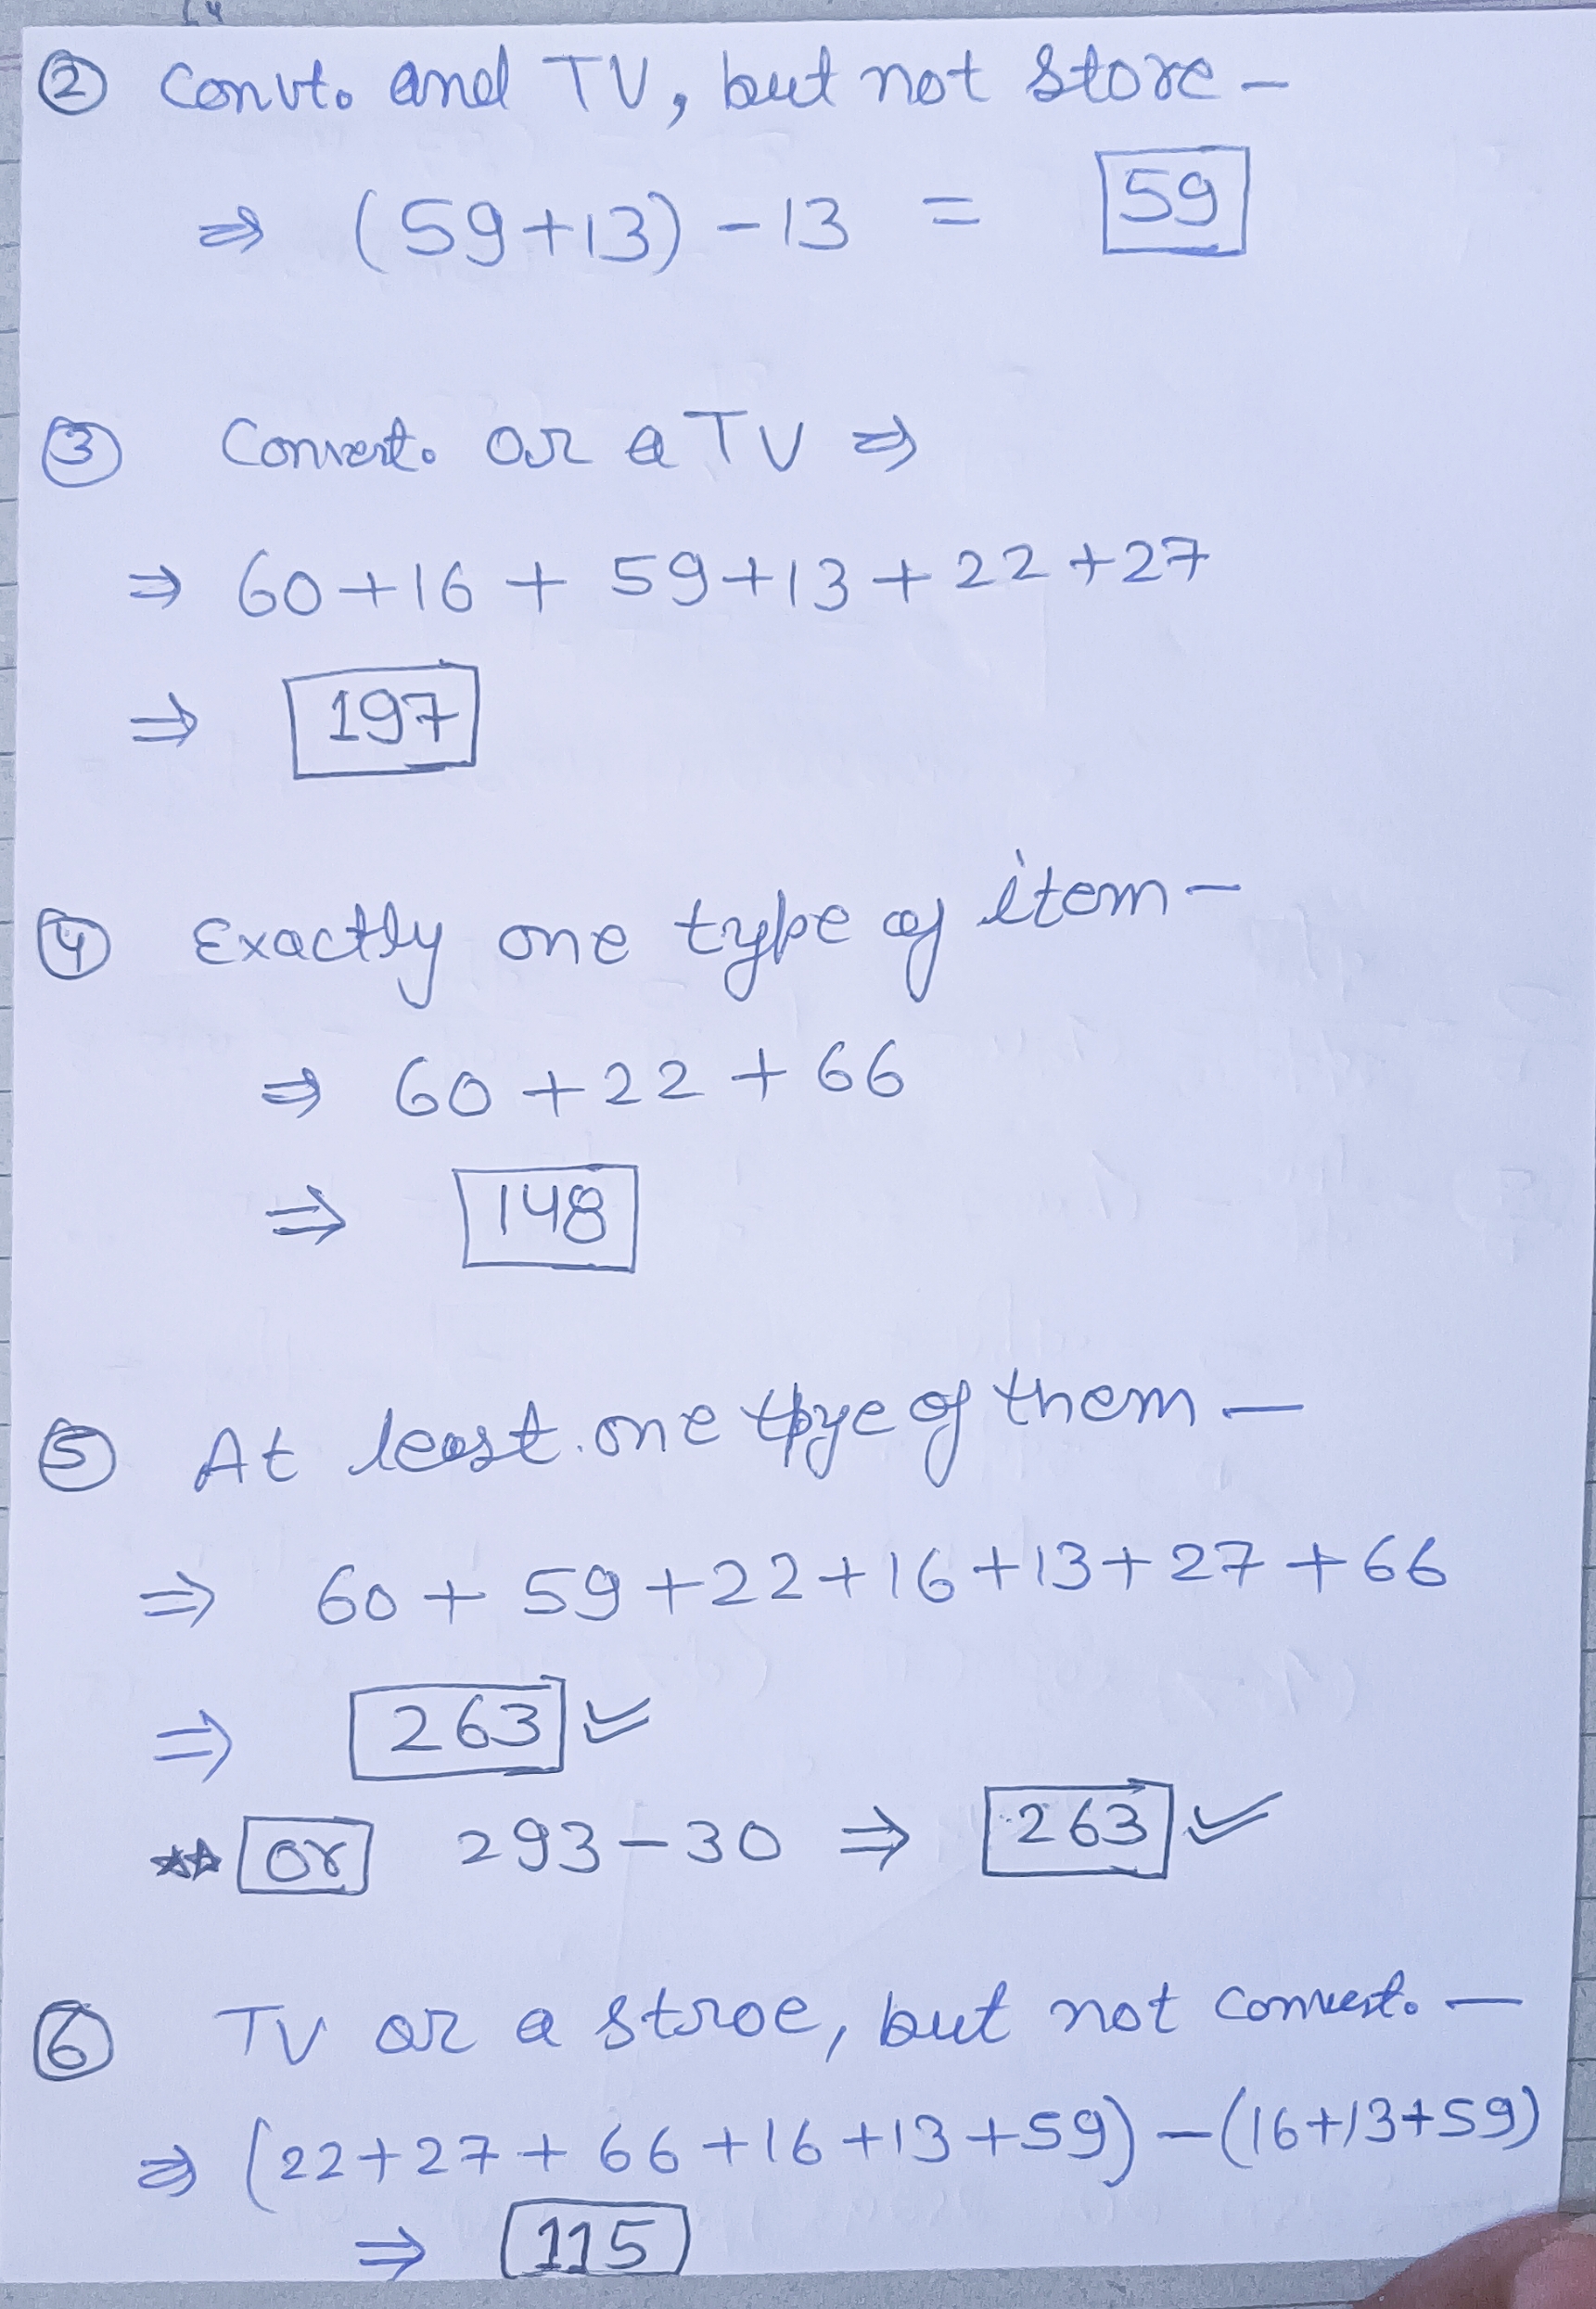 ② Convt. and TV, but not store -
⇒ (59+13) - 13 = 59
③ Convert. or a TV ⇒
⇒ 60+16 + 59+13+22+27
⇒ 197
④ Exactly one type of item -
⇒ 60+22+66
⇒ 148
⑤ At least one tpye of them -
⇒ 60+59+22+16+13+27+66
⇒ 263
or 293-30 ⇒ 263
⑥ TV or a stroe, but not convert. -
⇒ (22+27+66+16+13+59) - (16+13+59)
⇒ 115